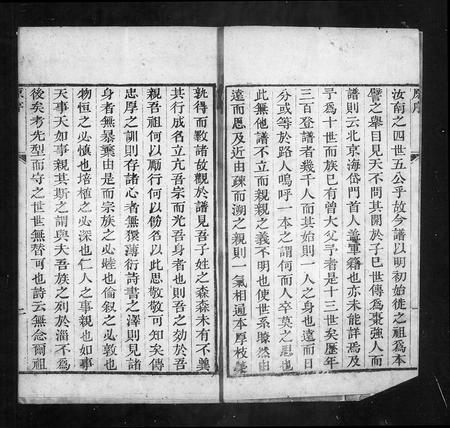 原序
汝南之四世五公乎故今譜以明初始徙之祖為本
譬之舉目見天不問其開於子巳世傳為棗強人而
譜則云北京海岱門首人蓋軍籍也亦未能詳焉及
予為十世而族已有曾大父予者是十三世矣歷年
三百登譜者幾千人而其始則一人之身也遠而日
分或等於路人嗚呼一本之謂何而人卒莫之思也
此無他譜不立而親親之義不明也使世系瞭然由
遠而恩及近由疎而溯之親則一氣相通本厚枝
孰得而數諸故觀於譜見吾子姓之森森未有不冀
其行成名立亢吾宗而光吾身者也則吾之幼於吾
親吾祖何以勵行何以勵名以此思敬敬可知矣傳
忠厚之訓則存諸心者無猥薄衍詩書之澤則見諸
身者無暴棄由是而宗族之必睦也倫叙之必敦也
物恒之必慎也培植之必深也仁人之事親也如事
天事天如事親其斯之謂與夫吾族之列於淄不為
後矣考先型而守之世世無替可也詩云無念爾祖
原序
二